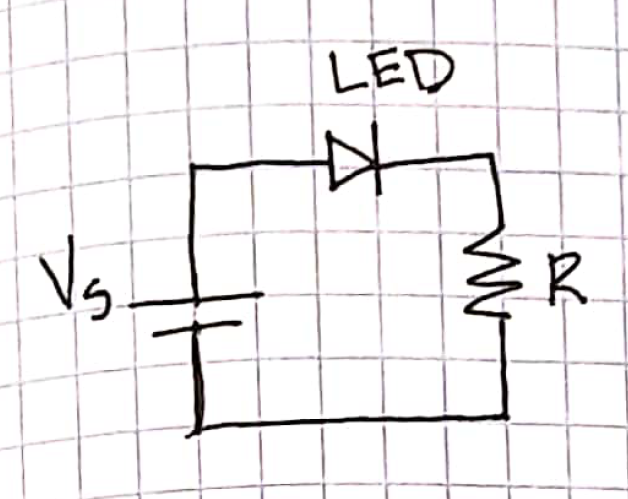 LED
Vs
R